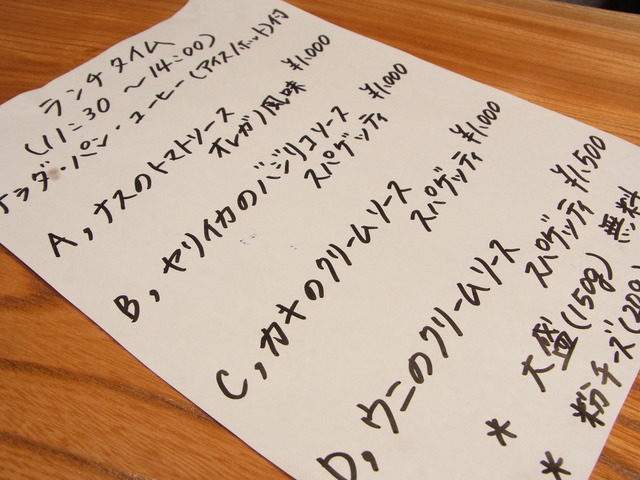 ランチタイム
(11:30 〜14:00)
サラダ・パン・コーヒー(アイス/ホット)付
A, ナスのトマトソース
オレガノ風味 ¥1,000
B, ヤリイカのバジリコソース
スパゲッティ ¥1,000
C, カキのクリームソース
スパゲッティ ¥1,000
D, ウニのクリームソース
スパゲッティ ¥1,500
* 大盛(150g) 無料
* 粉チーズ(20g